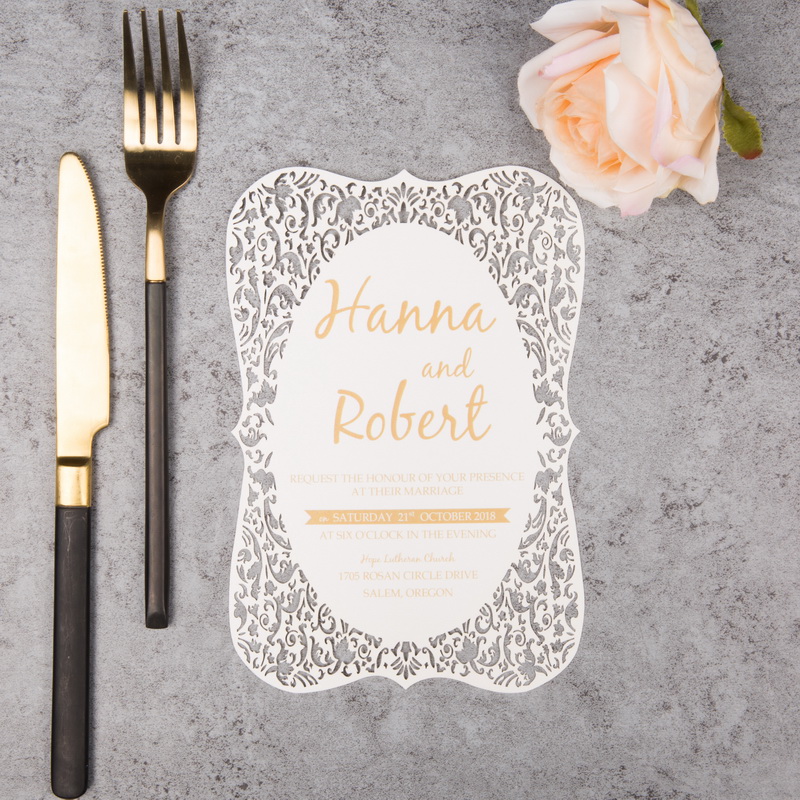 Hanna
and
Robert
REQUEST THE HONOUR OF YOUR PRESENCE
AT THEIR MARRIAGE
on SATURDAY 21st OCTOBER 2018
AT SIX O'CLOCK IN THE EVENING
Hope Lutheran Church
1705 ROSAN CIRCLE DRIVE
SALEM, OREGON